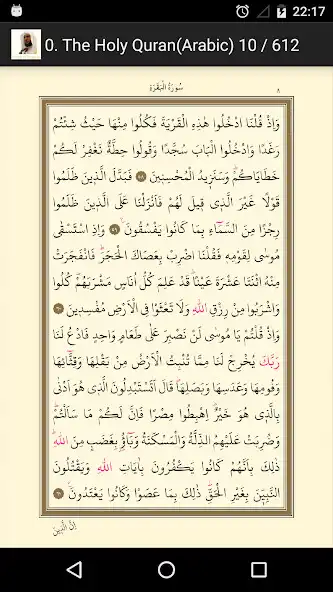 22:17
0. The Holy Quran(Arabic) 10 / 612
سُورَةُ الْبَقَرَةِ ٨
وَاِذْ قُلْنَا ادْخُلُوا هٰذِهِ الْقَرْيَةَ فَكُلُوا مِنْهَا حَيْثُ شِئْتُمْ
رَغَدًا وَادْخُلُوا الْبَابَ سُجَّدًا وَقُولُوا حِطَّةٌ نَغْفِرْ لَكُمْ
خَطَايَاكُمْ وَسَنَزِيدُ الْمُحْسِنِينَ ﴿٥٨﴾ فَبَدَّلَ الَّذِينَ ظَلَمُوا
قَوْلًا غَيْرَ الَّذِى قِيلَ لَهُمْ فَاَنْزَلْنَا عَلَى الَّذِينَ ظَلَمُوا
رِجْزًا مِنَ السَّمَٓاءِ بِمَا كَانُوا يَفْسُقُونَ ﴿٥٩﴾ وَاِذِ اسْتَسْقٰى
مُوسٰى لِقَوْمِهِ فَقُلْنَا اضْرِبْ بِعَصَاكَ الْحَجَرَ فَانْفَجَرَتْ
مِنْهُ اثْنَتَا عَشْرَةَ عَيْنًا قَدْ عَلِمَ كُلُّ اُنَاسٍ مَشْرَبَهُمْ كُلُوا
وَاشْرَبُوا مِنْ رِزْقِ اللّٰهِ وَلَا تَعْثَوْا فِى الْاَرْضِ مُفْسِدِينَ ﴿٦٠﴾
وَاِذْ قُلْتُمْ يَا مُوسٰى لَنْ نَصْبِرَ عَلٰى طَعَامٍ وَاحِدٍ فَادْعُ لَنَا
رَبَّكَ يُخْرِجْ لَنَا مِمَّا تُنْبِتُ الْاَرْضُ مِنْ بَقْلِهَا وَقِثَّٓائِهَا
وَفُومِهَا وَعَدَسِهَا وَبَصَلِهَا قَالَ اَتَسْتَبْدِلُونَ الَّذِى هُوَ اَدْنٰى
بِالَّذِى هُوَ خَيْرٌ اِهْبِطُوا مِصْرًا فَاِنَّ لَكُمْ مَا سَاَلْتُمْ
وَضُرِبَتْ عَلَيْهِمُ الذِّلَّةُ وَالْمَسْكَنَةُ وَبَٓاؤُ بِغَضَبٍ مِنَ اللّٰهِ
ذٰلِكَ بِاَنَّهُمْ كَانُوا يَكْفُرُونَ بِاٰيَاتِ اللّٰهِ وَيَقْتُلُونَ
النَّبِيّٖنَ بِغَيْرِ الْحَقِّ ذٰلِكَ بِمَا عَصَوْا وَكَانُوا يَعْتَدُونَ ﴿٦١﴾
اِنَّ الَّذِينَ